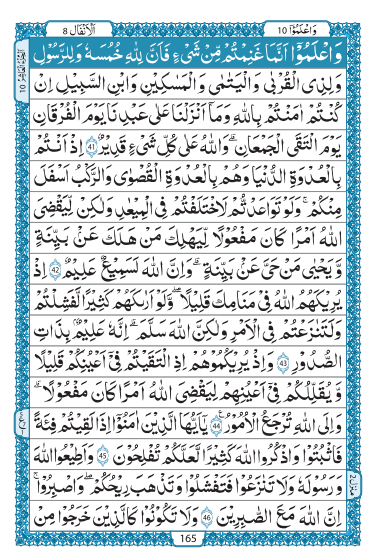 وَاعْلَمُوْٓا 10
اَلْاَنْفَال 8
وَاعْلَمُوْٓا اَنَّمَا غَنِمْتُمْ مِّنْ شَیْءٍ فَاَنَّ لِلّٰهِ خُمُسَهٗ وَلِلرَّسُوْلِ
وَلِذِی الْقُرْبٰی وَالْیَتٰمٰی وَالْمَسٰکِیْنِ وَابْنِ السَّبِیْلِ اِنْ
کُنْتُمْ اٰمَنْتُمْ بِاللّٰهِ وَمَآ اَنْزَلْنَا عَلٰی عَبْدِنَا یَوْمَ الْفُرْقَانِ
یَوْمَ الْتَقَی الْجَمْعَانِ ؕ وَاللّٰهُ عَلٰی کُلِّ شَیْءٍ قَدِیْرٌ 41 اِذْ اَنْتُمْ
بِالْعُدْوَةِ الدُّنْیَا وَهُمْ بِالْعُدْوَةِ الْقُصْوٰی وَالرَّکْبُ اَسْفَلَ
مِنْکُمْ ؕ وَلَوْ تَوَاعَدْتُّمْ لَاخْتَلَفْتُمْ فِی الْمِیْعٰدِ وَلٰکِنْ لِّیَقْضِیَ
اللّٰهُ اَمْرًا کَانَ مَفْعُوْلًا لِّیَهْلِکَ مَنْ هَلَکَ عَنْۢ بَیِّنَةٍ
وَّیَحْیٰی مَنْ حَیَّ عَنْۢ بَیِّنَةٍ ؕ وَاِنَّ اللّٰهَ لَسَمِیْعٌ عَلِیْمٌ 42 اِذْ
یُرِیْکَهُمُ اللّٰهُ فِیْ مَنَامِکَ قَلِیْلًا ؕ وَلَوْ اَرٰىکَهُمْ کَثِیْرًا لَّفَشِلْتُمْ
وَلَتَنَازَعْتُمْ فِی الْاَمْرِ وَلٰکِنَّ اللّٰهَ سَلَّمَ ؕ اِنَّهٗ عَلِیْمٌۢ بِذَاتِ
الصُّدُوْرِ 43 وَاِذْ یُرِیْکُمُوْهُمْ اِذِ الْتَقَیْتُمْ فِیْٓ اَعْیُنِکُمْ قَلِیْلًا
وَّیُقَلِّلُکُمْ فِیْٓ اَعْیُنِهِمْ لِیَقْضِیَ اللّٰهُ اَمْرًا کَانَ مَفْعُوْلًا ؕ
وَاِلَی اللّٰهِ تُرْجَعُ الْاُمُوْرُ 44 یٰٓاَیُّهَا الَّذِیْنَ اٰمَنُوْٓا اِذَا لَقِیْتُمْ فِئَةً
فَاثْبُتُوْا وَاذْکُرُوا اللّٰهَ کَثِیْرًا لَّعَلَّکُمْ تُفْلِحُوْنَ 45 وَاَطِیْعُوا اللّٰهَ
وَرَسُوْلَهٗ وَلَا تَنَازَعُوْا فَتَفْشَلُوْا وَتَذْهَبَ رِیْحُکُمْ وَاصْبِرُوْا ؕ
اِنَّ اللّٰهَ مَعَ الصّٰبِرِیْنَ 46 وَلَا تَکُوْنُوْا کَالَّذِیْنَ خَرَجُوْا مِنْ
165